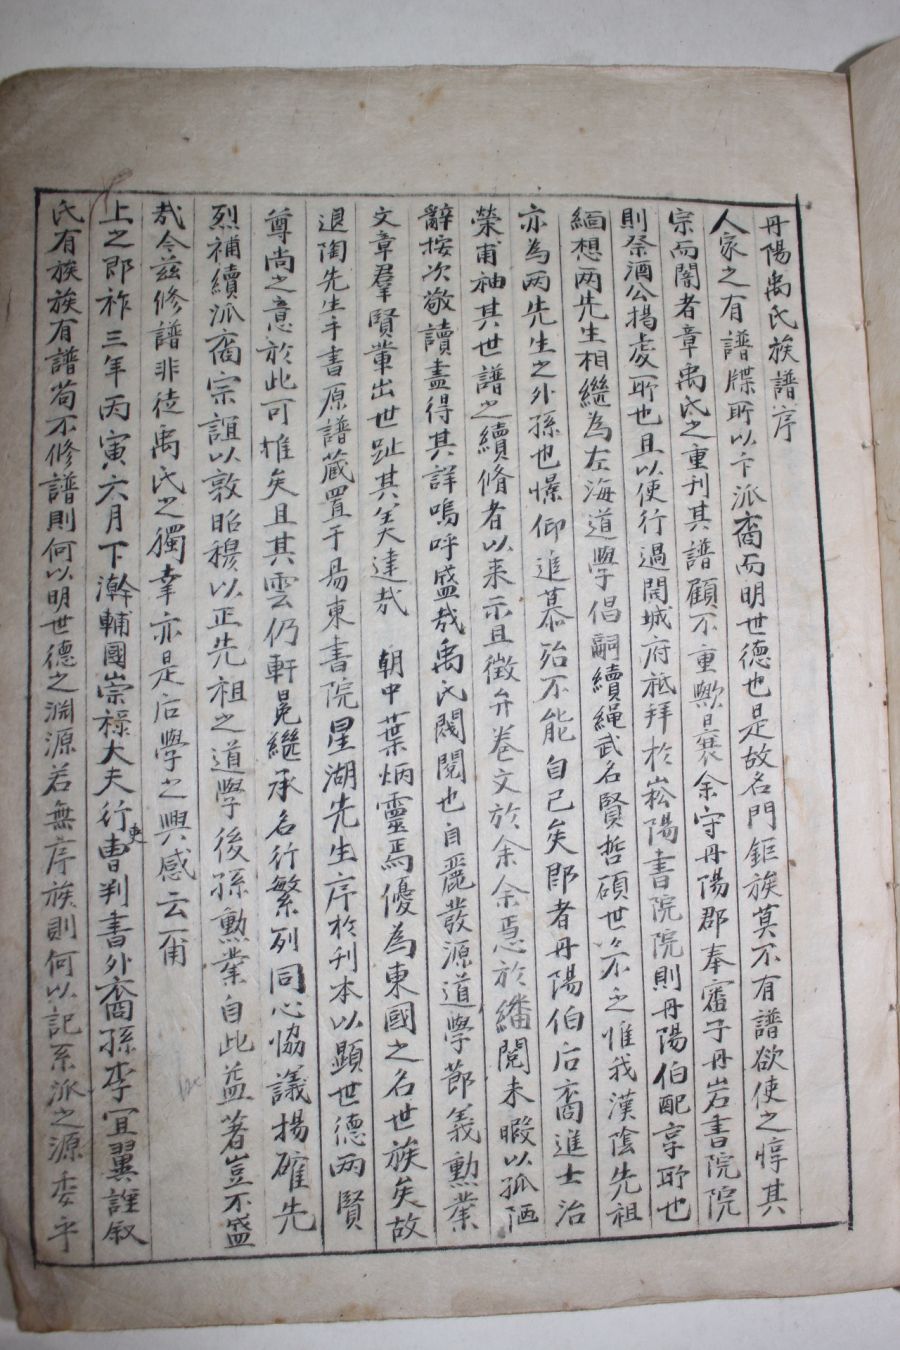 丹陽禹氏族譜序
人家之有譜牒所以卞派裔而明世德也是故名門鉅族莫不有譜欲使之惇其
宗而闇者章禹氏之重刊其譜顧不重歟曩余守丹陽郡奉審于丹岩書院院
則祭酒公揚虔所也且以使行過開城府祗拜於崧陽書院院則丹陽伯配享所也
緬想两先生相繼為左海道學倡嗣續繩武名賢哲碩世不乏惟我漢陰先祖
亦為两先生之外孫也憬仰進慕殆不能自已矣郎者丹陽伯后裔進士治
榮甫袖其世譜之續脩者以来示且徵弁卷文於余余焉於繙閱未暇以孤陋
辭按次敬讀盡得其詳嗚呼盛哉禹氏閥閱也自麗發源道學節義勳業
文章羣賢輩出世趾其美達哉 朝中葉炳靈焉優為東國之名世族矣故
退陶先生手書原譜蔵置于易東書院星湖先生序於刊本以顯世德两賢
尊尚之意於此可推矣且其雲仍軒冕継承名行繁列同心協議揚確先
烈補續派裔宗誼以敦昭穆以正先祖之道學後孫勳業自此益著豈不盛
哉今兹修譜非徒禹氏之獨幸亦是后學之興感云甭
上之即祚三年丙寅六月下澣輔國崇祿大夫行吏曹判書外裔孫李宜翼謹叙
氏有族族有譜苟不修譜則何以明世德之渊源若無序族則何以記系派之源委乎